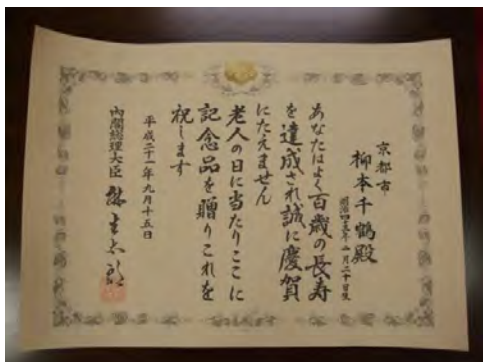 京都市
柳本千鶴殿
明治 月二十日生
あなたはよく百歳の長寿
を達成され誠に慶賀
にたえません
老人の日に当たりここに
記念品を贈りこれを
祝します
平成二十一年九月十五日
内閣総理大臣 麻生太郎